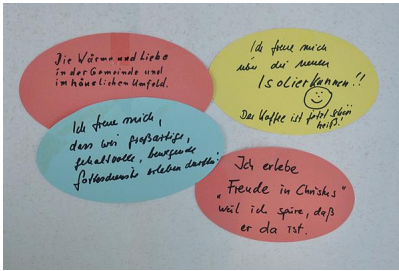 Die Wärme und Liebe
in der Gemeinde und
im häuslichen Umfeld.
Ich freue mich
über die neuen
Isolierkannen!!
Der Kaffee ist jetzt schön
heiß!
Ich freue mich,
dass wir großartige,
gehaltvolle, bewegende
Gottesdienste erleben dürfen!
Ich erlebe
"Freude in Christus"
weil ich spüre, daß
er da ist.